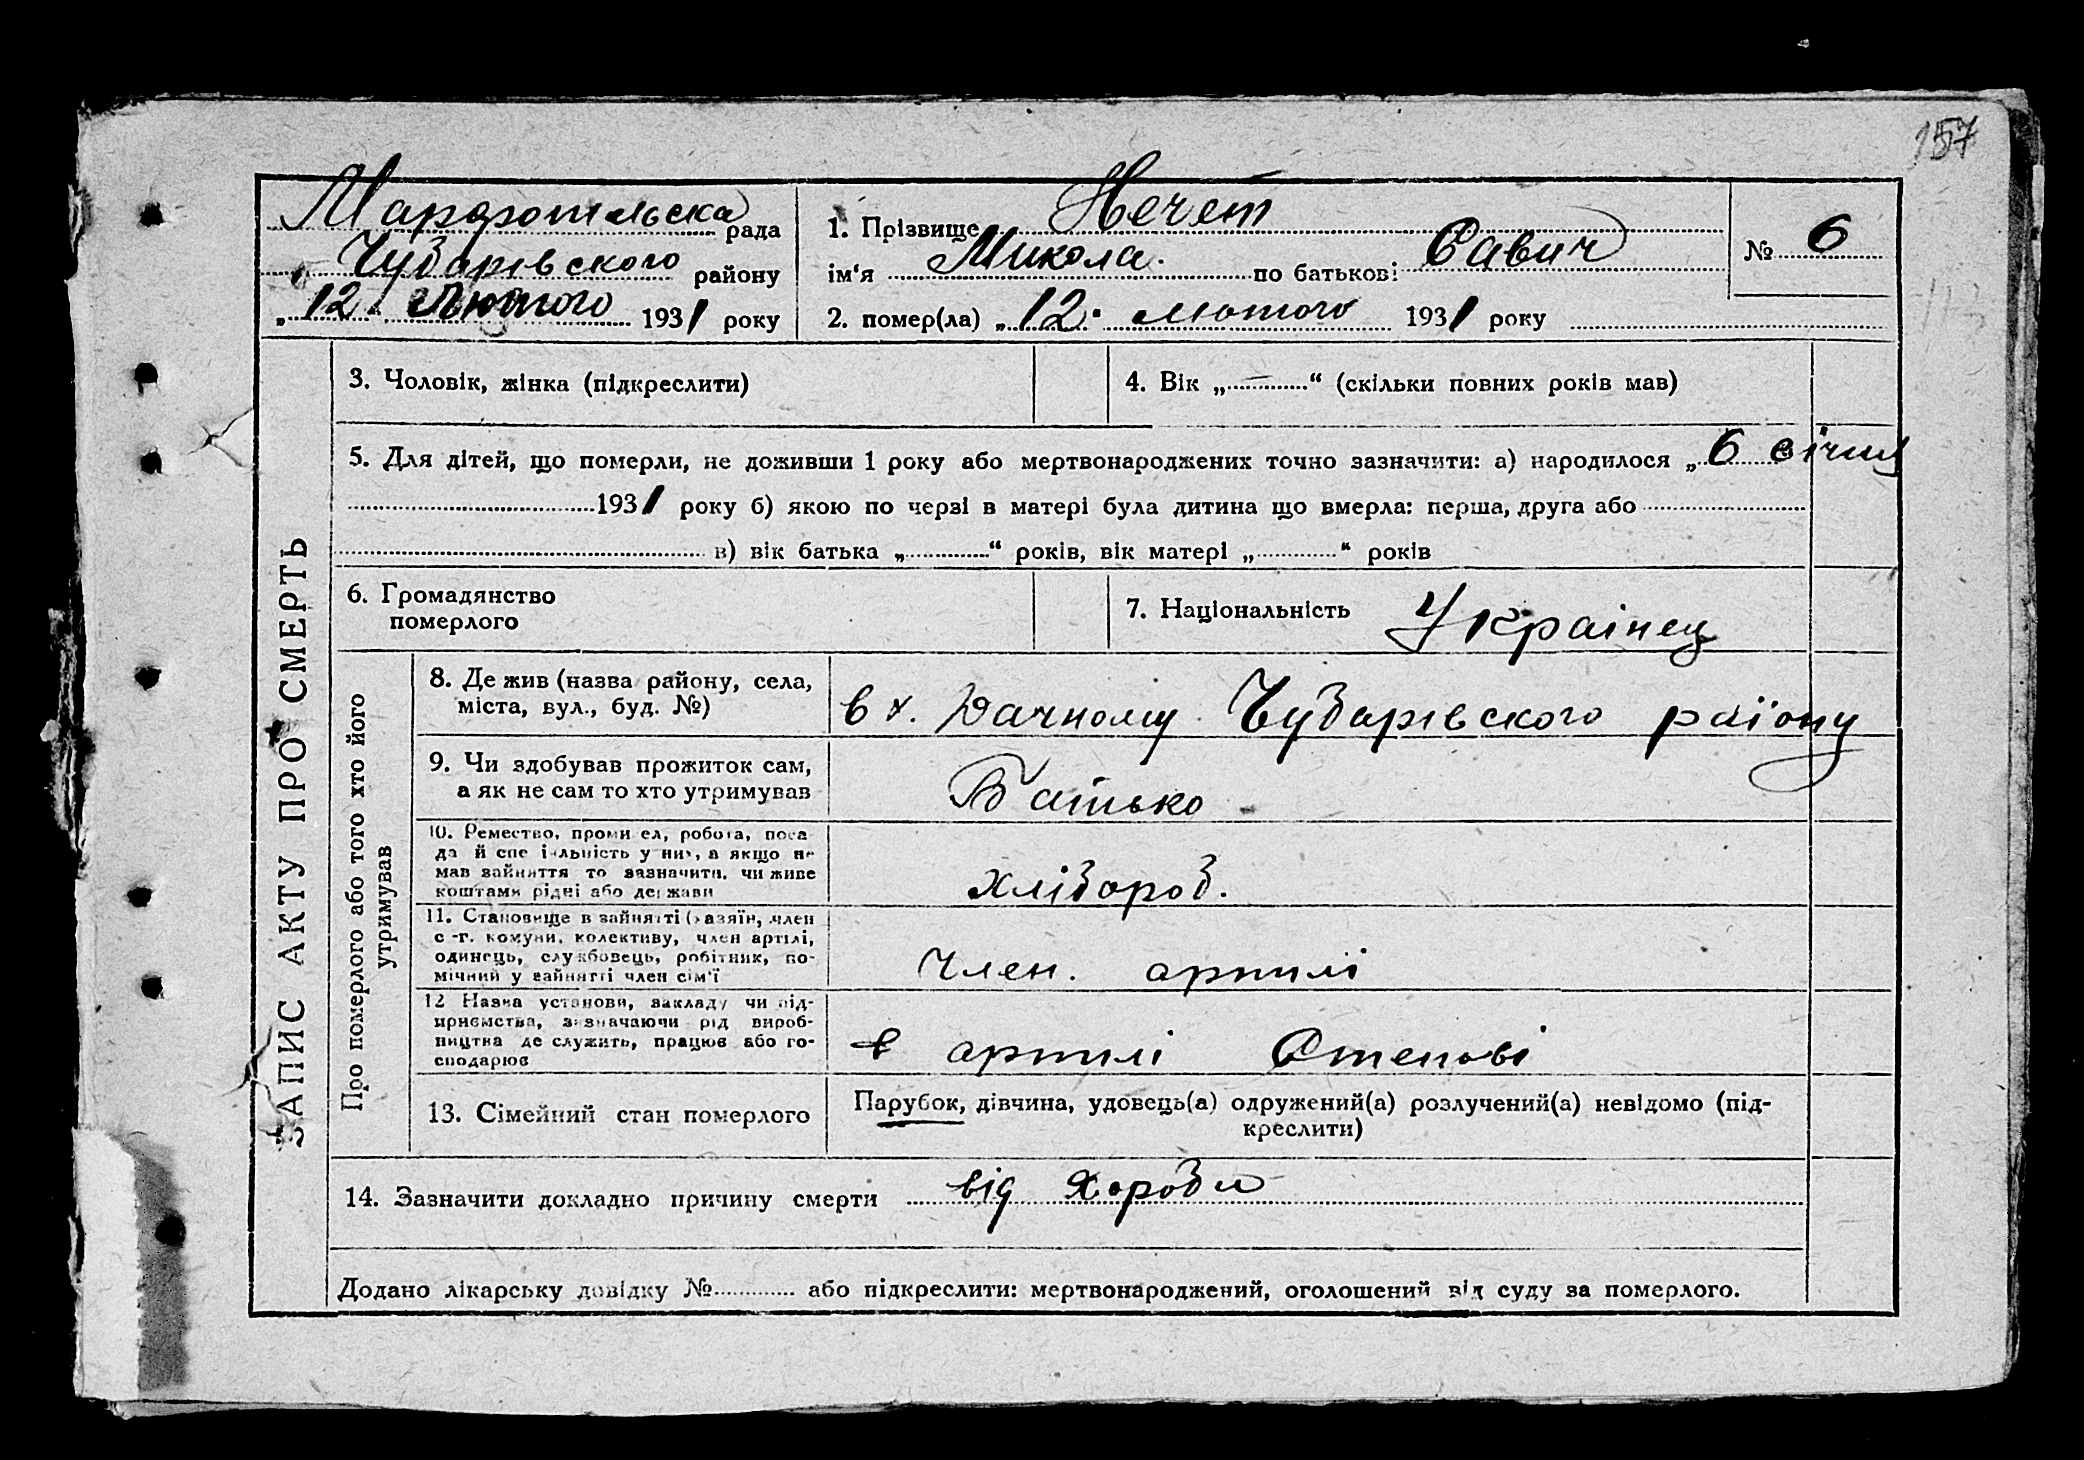 157
Марфопільська рада
Чубарівського району
„12" Лютого 1931 року
1. Прізвище Нечет
ім'я Микола по батькові Савич
№ 6
2. помер(ла) „12" лютого 1931 року
ЗАПИС АКТУ ПРО СМЕРТЬ
3. Чоловік, жінка (підкреслити)
4. Вік „—“ (скільки повних років мав)
5. Для дітей, що померли, не доживши 1 року або мертвонароджених точно зазначити: а) народилося „6 січня
1931 року б) якою по черзі в матері була дитина що вмерла: перша, друга або
в) вік батька „ “ років, вік матері „ “ років
6. Громадянство
померлого
7. Національність Українец
Про померлого або того хто його
утримував
8. Де жив (назва району, села,
міста, вул., буд. №)
в х. Дачному Чубарівского району
9. Чи здобував прожиток сам,
а як не сам то хто утримував
Батько
10. Ремество, промисел, робота, поса-
да й спеціяльність у них, а якщо не
мав зайняття то зазначити, чи живе
коштами рідні або держави
хлібороб.
11. Становище в зайнятті (хазяїн, член
с.-г. комуни, колективу, член артілі,
одинець, службовець, робітник, по-
мічний у зайнятті член сім'ї
Член. артилі
12 Назва установи, закладу чи під-
приємства, зазначаючи рід вироб-
ництва де служить, працює або го-
сподарює
в артилі Степові
13. Сімейний стан померлого
Парубок, дівчина, удовець(а) одружений(а) розлучений(а) невідомо (під-
креслити)
14. Зазначити докладно причину смерти від хороби
Додано лікарську довідку № або підкреслити: мертвонароджений, оголошений від суду за померлого.